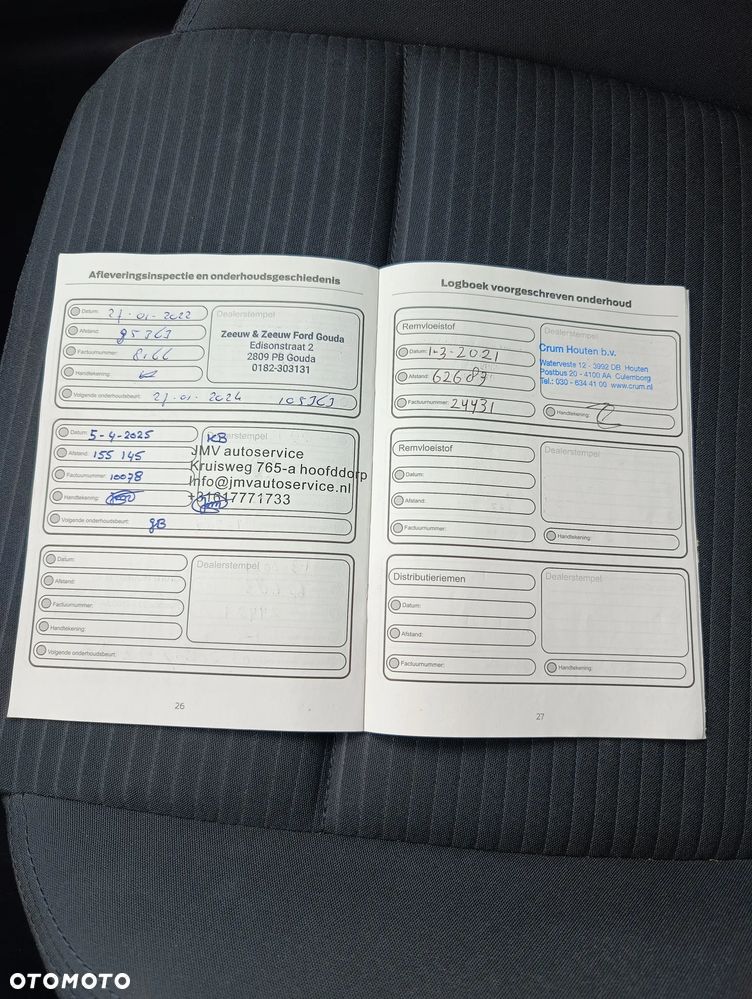 Afleveringsinspectie en onderhoudsgeschiedenis
Datum: 27-01-2022
Afstand: 95363
Factuurnummer: 8166
Handtekening:
Volgende onderhoudsbeurt: 27-01-2024 105363
Dealerstempel
Zeeuw & Zeeuw Ford Gouda
Edisonstraat 2
2809 PB Gouda
0182-303131
Datum: 5-4-2025
Afstand: 155 145
Factuurnummer: 10078
Handtekening:
Volgende onderhoudsbeurt: gB
KB
Dealerstempel
JMV autoservice
Kruisweg 765-a hoofddorp
Info@jmvautoservice.nl
+31617771733
Datum:
Afstand:
Factuurnummer:
Handtekening:
Volgende onderhoudsbeurt:
Dealerstempel
26
Logboek voorgeschreven onderhoud
Remvloeistof
Datum: 1-3-2021
Afstand: 62687
Factuurnummer: 24431
Dealerstempel
Crum Houten b.v.
Waterveste 12 - 3992 DB Houten
Postbus 20 - 4100 AA Culemborg
Tel.: 030 - 634 41 09 www.crum.nl
Handtekening:
Remvloeistof
Datum:
Afstand:
Factuurnummer:
Dealerstempel
Handtekening:
Distributieriemen
Datum:
Afstand:
Factuurnummer:
Dealerstempel
Handtekening:
27
OTOMOTO